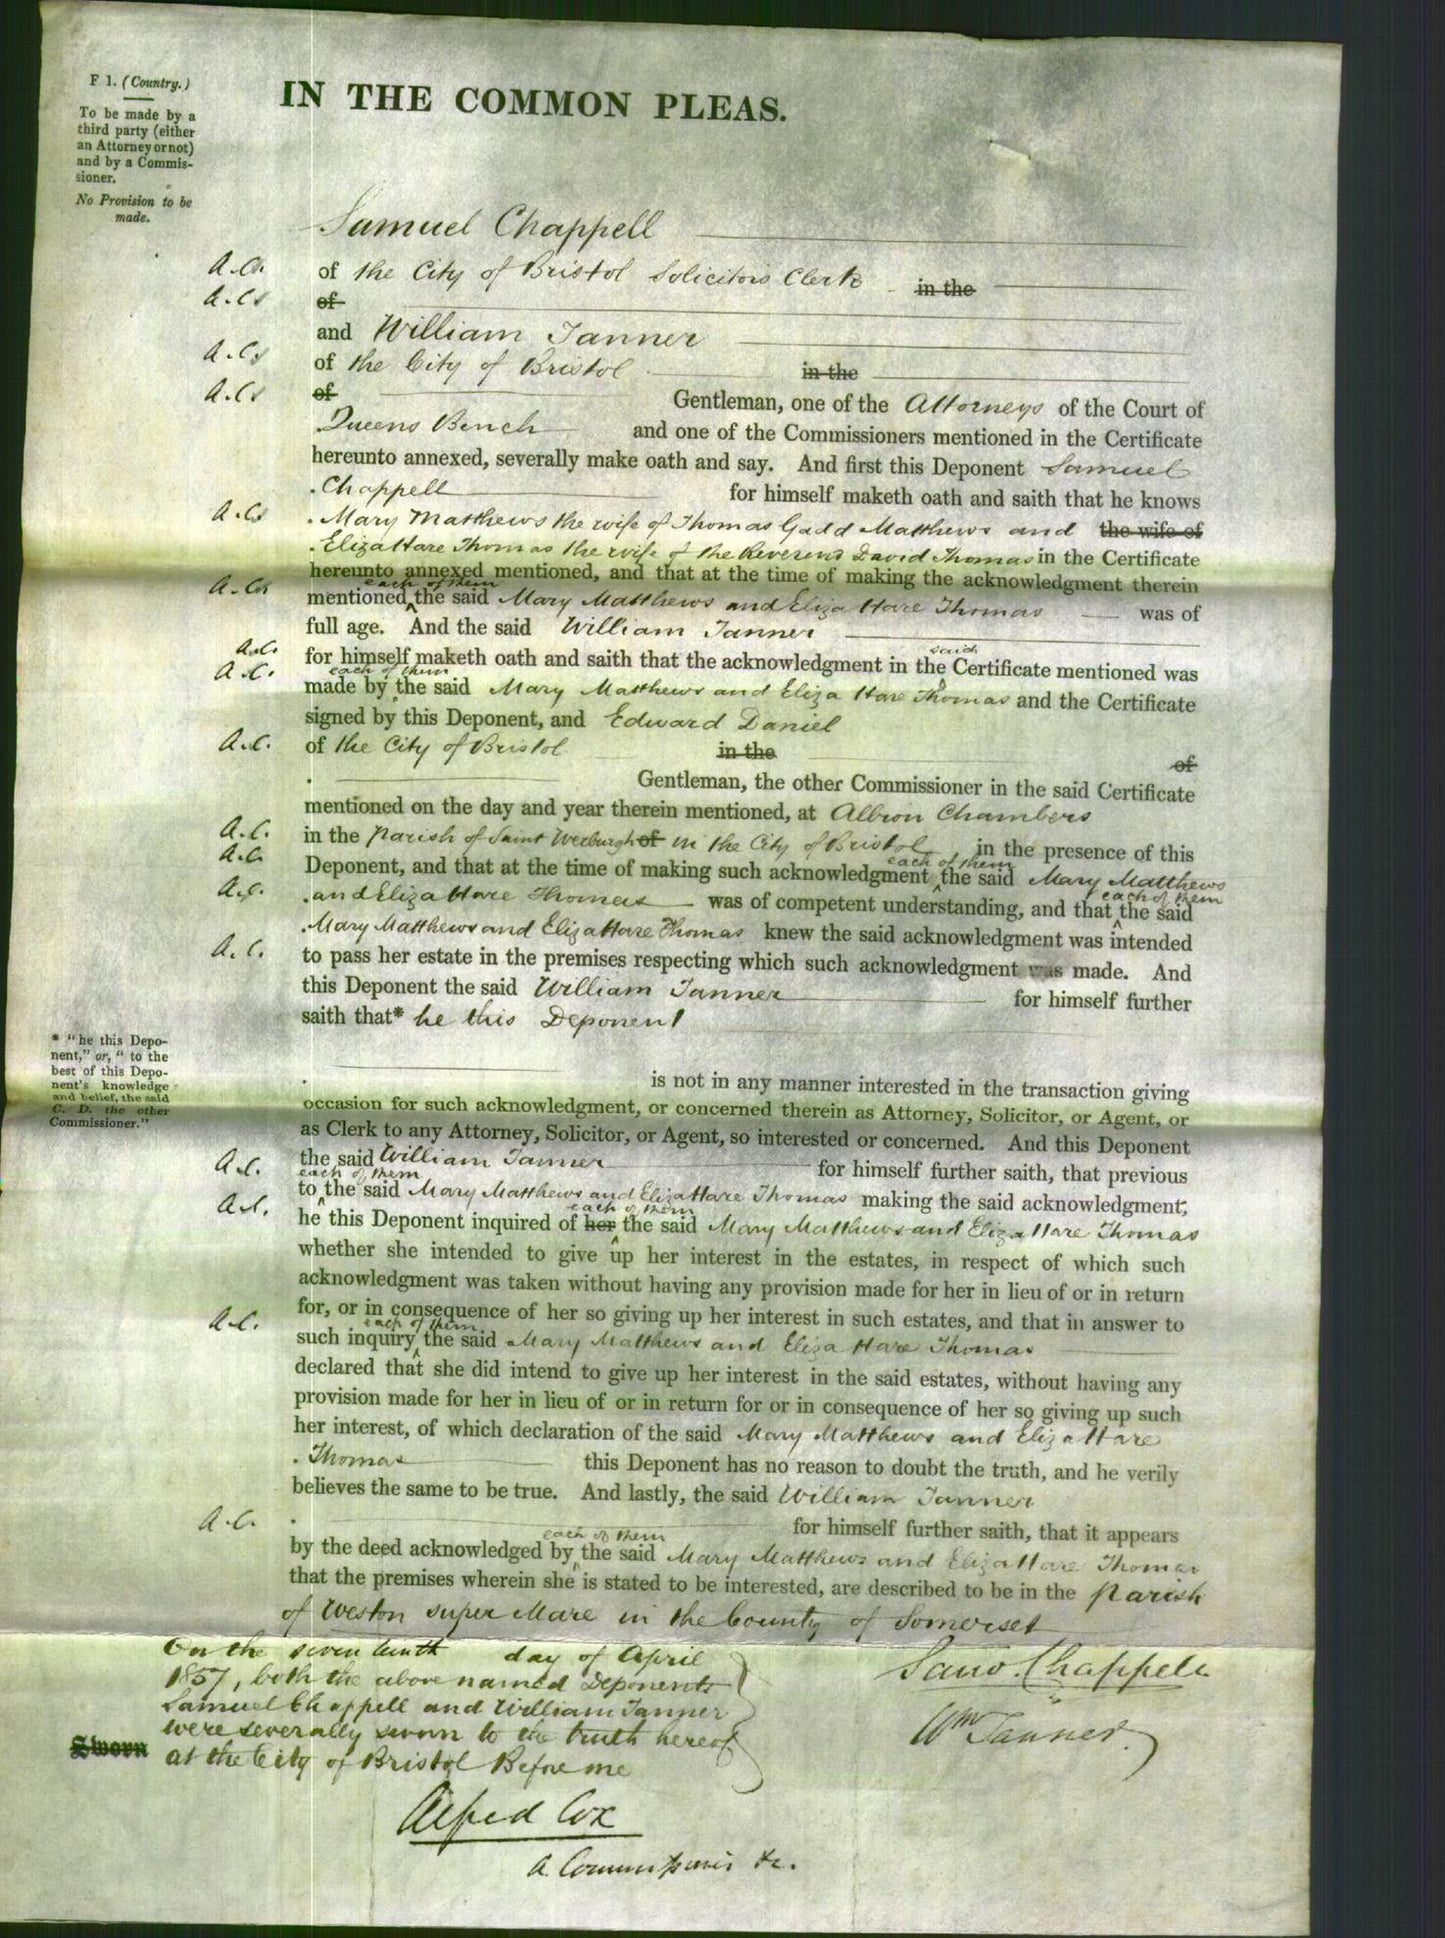 F 1. (Country.)
To be made by a
third party (either
an Attorney or not)
and by a Commis-
sioner.
No Provision to be
made.
IN THE COMMON PLEAS.
Samuel Chappell
A.C. of the City of Bristol Solicitors Clerk in the
A.C. of
and William Tanner
A.C. of the City of Bristol in the
A.C. of Gentleman, one of the Attorneys of the Court of
Queens Bench and one of the Commissioners mentioned in the Certificate
hereunto annexed, severally make oath and say. And first this Deponent Samuel
Chappell for himself maketh oath and saith that he knows
A.C. Mary Matthews the wife of Thomas Gadd Matthews and the wife of
Eliza Hare Thomas the wife of the Reverend David Thomas in the Certificate
hereunto annexed mentioned, and that at the time of making the acknowledgment therein
A.C. mentioned each of them the said Mary Matthews and Eliza Hare Thomas was of
full age. And the said William Tanner
A.C. for himself maketh oath and saith that the acknowledgment in the said Certificate mentioned was
A.C. made by each of them the said Mary Matthews and Eliza Hare Thomas and the Certificate
signed by this Deponent, and Edward Daniel
A.C. of the City of Bristol in the of
Gentleman, the other Commissioner in the said Certificate
mentioned on the day and year therein mentioned, at Albion Chambers
A.C. in the Parish of Saint Werburgh of in the City of Bristol in the presence of this
A.C. Deponent, and that at the time of making such acknowledgment each of them the said Mary Matthews
A.C. and Eliza Hare Thomas was of competent understanding, and that each of them the said
Mary Matthews and Eliza Hare Thomas knew the said acknowledgment was intended
A.C. to pass her estate in the premises respecting which such acknowledgment was made. And
this Deponent the said William Tanner for himself further
saith that* he this Deponent
* "he this Depo-
nent," or, "to the
best of this Depo-
nent's knowledge
and belief, the said
C. D. the other
Commissioner."
is not in any manner interested in the transaction giving
occasion for such acknowledgment, or concerned therein as Attorney, Solicitor, or Agent, or
as Clerk to any Attorney, Solicitor, or Agent, so interested or concerned. And this Deponent
A.C. the said William Tanner for himself further saith, that previous
to each of them the said Mary Matthews and Eliza Hare Thomas making the said acknowledgment,
A.C. he this Deponent inquired of her each of them the said Mary Matthews and Eliza Hare Thomas
whether she intended to give up her interest in the estates, in respect of which such
acknowledgment was taken without having any provision made for her in lieu of or in return
for, or in consequence of her so giving up her interest in such estates, and that in answer to
A.C. such inquiry each of them the said Mary Matthews and Eliza Hare Thomas
declared that she did intend to give up her interest in the said estates, without having any
provision made for her in lieu of or in return for or in consequence of her so giving up such
her interest, of which declaration of the said Mary Matthews and Eliza Hare
Thomas this Deponent has no reason to doubt the truth, and he verily
believes the same to be true. And lastly, the said William Tanner
A.C. for himself further saith, that it appears
by the deed acknowledged by each of them the said Mary Matthews and Eliza Hare Thomas
that the premises wherein she is stated to be interested, are described to be in the Parish
of Weston super Mare in the County of Somerset
On the seventeenth day of April
1857, both the above named Deponents
Samuel Chappell and William Tanner
were severally sworn to the truth hereof
Sworn at the City of Bristol Before me
Saml. Chappell
Wm Tanner.
Alfred Cox
A Commissioner &c.